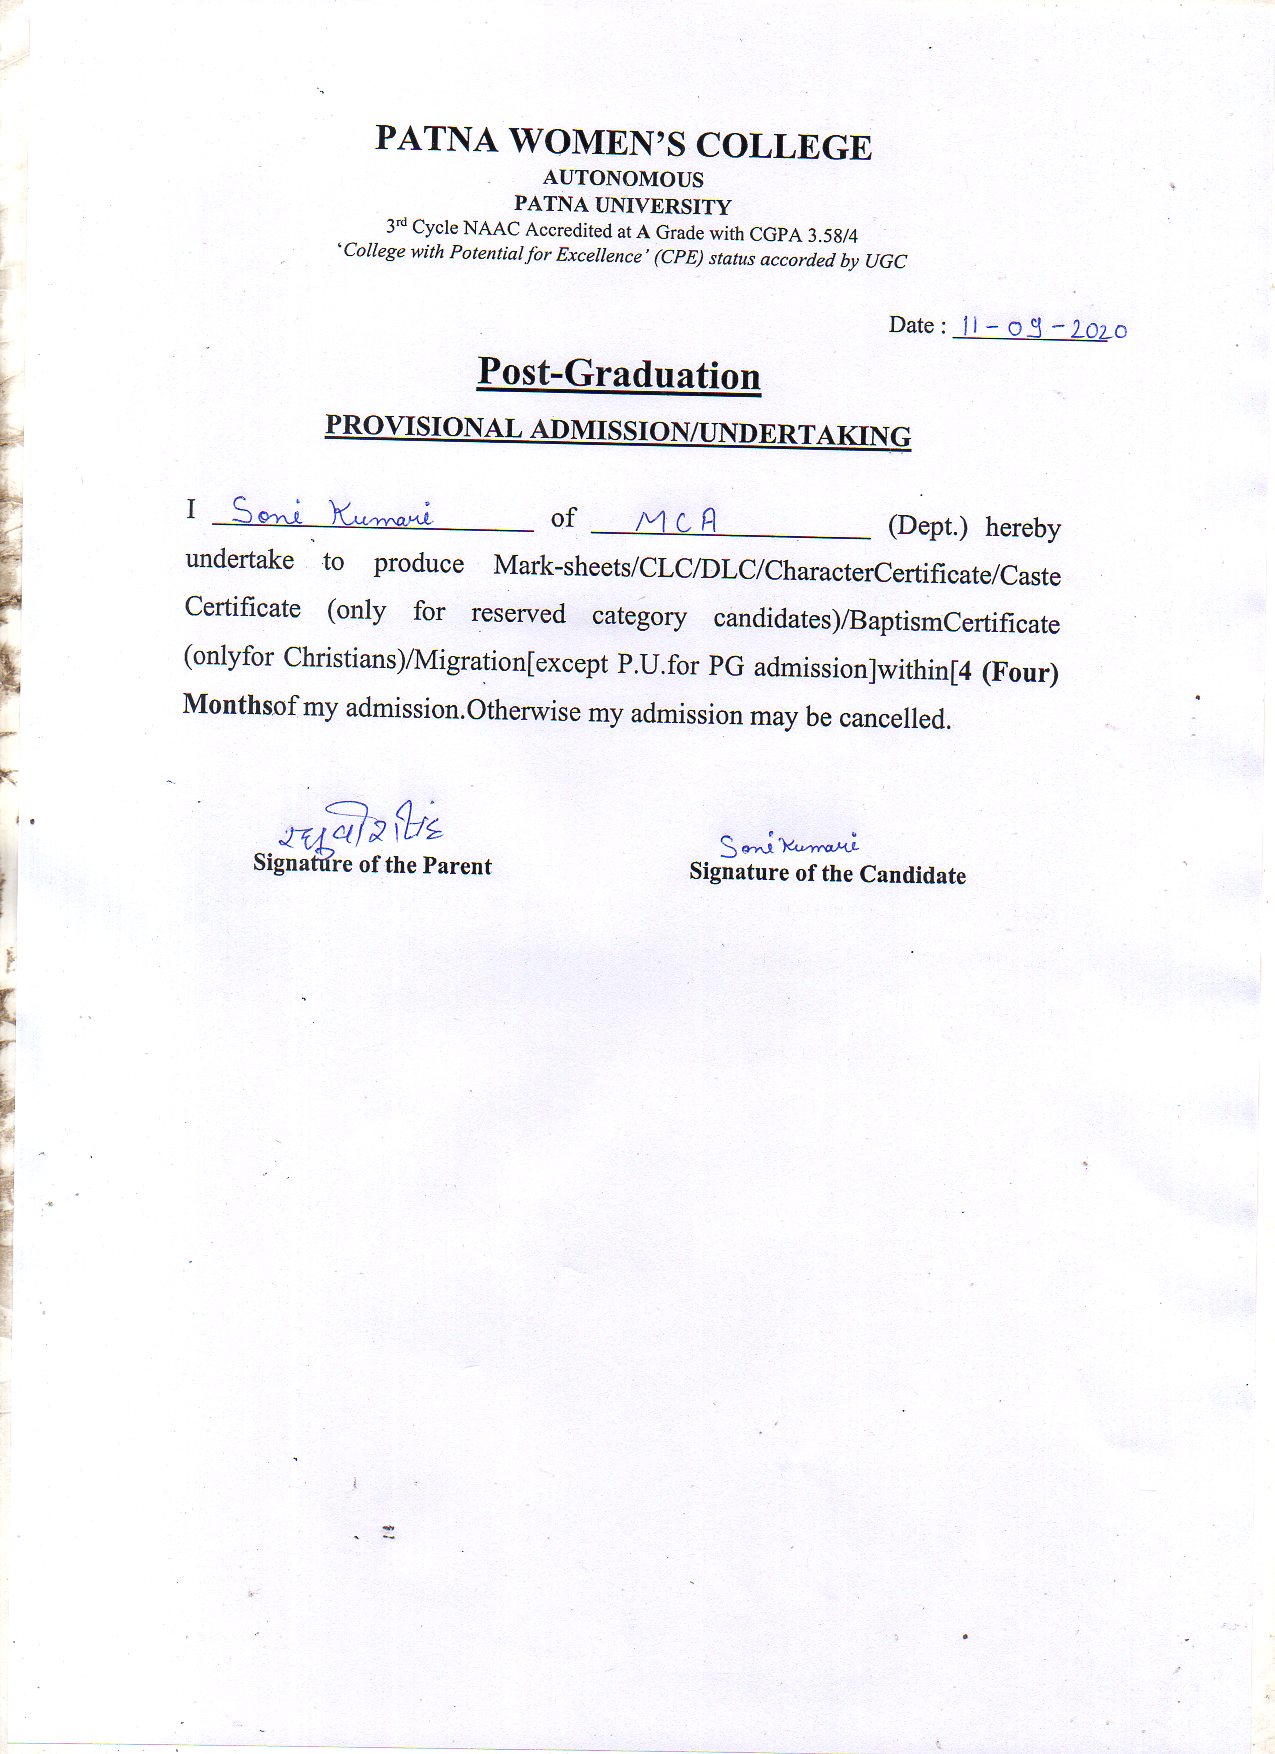 PATNA WOMEN'S COLLEGE
AUTONOMOUS
PATNA UNIVERSITY
3rd Cycle NAAC Accredited at A Grade with CGPA 3.58/4
'College with Potential for Excellence' (CPE) status accorded by UGC
Date : 11-09-2020
Post-Graduation
PROVISIONAL ADMISSION/UNDERTAKING
I Soni Kumari of MCA (Dept.) hereby
undertake to produce Mark-sheets/CLC/DLC/CharacterCertificate/Caste
Certificate (only for reserved category candidates)/BaptismCertificate
(onlyfor Christians)/Migration[except P.U.for PG admission]within[4 (Four)
Monthsof my admission.Otherwise my admission may be cancelled.
Soni Kumari
Signature of the Parent Signature of the Candidate